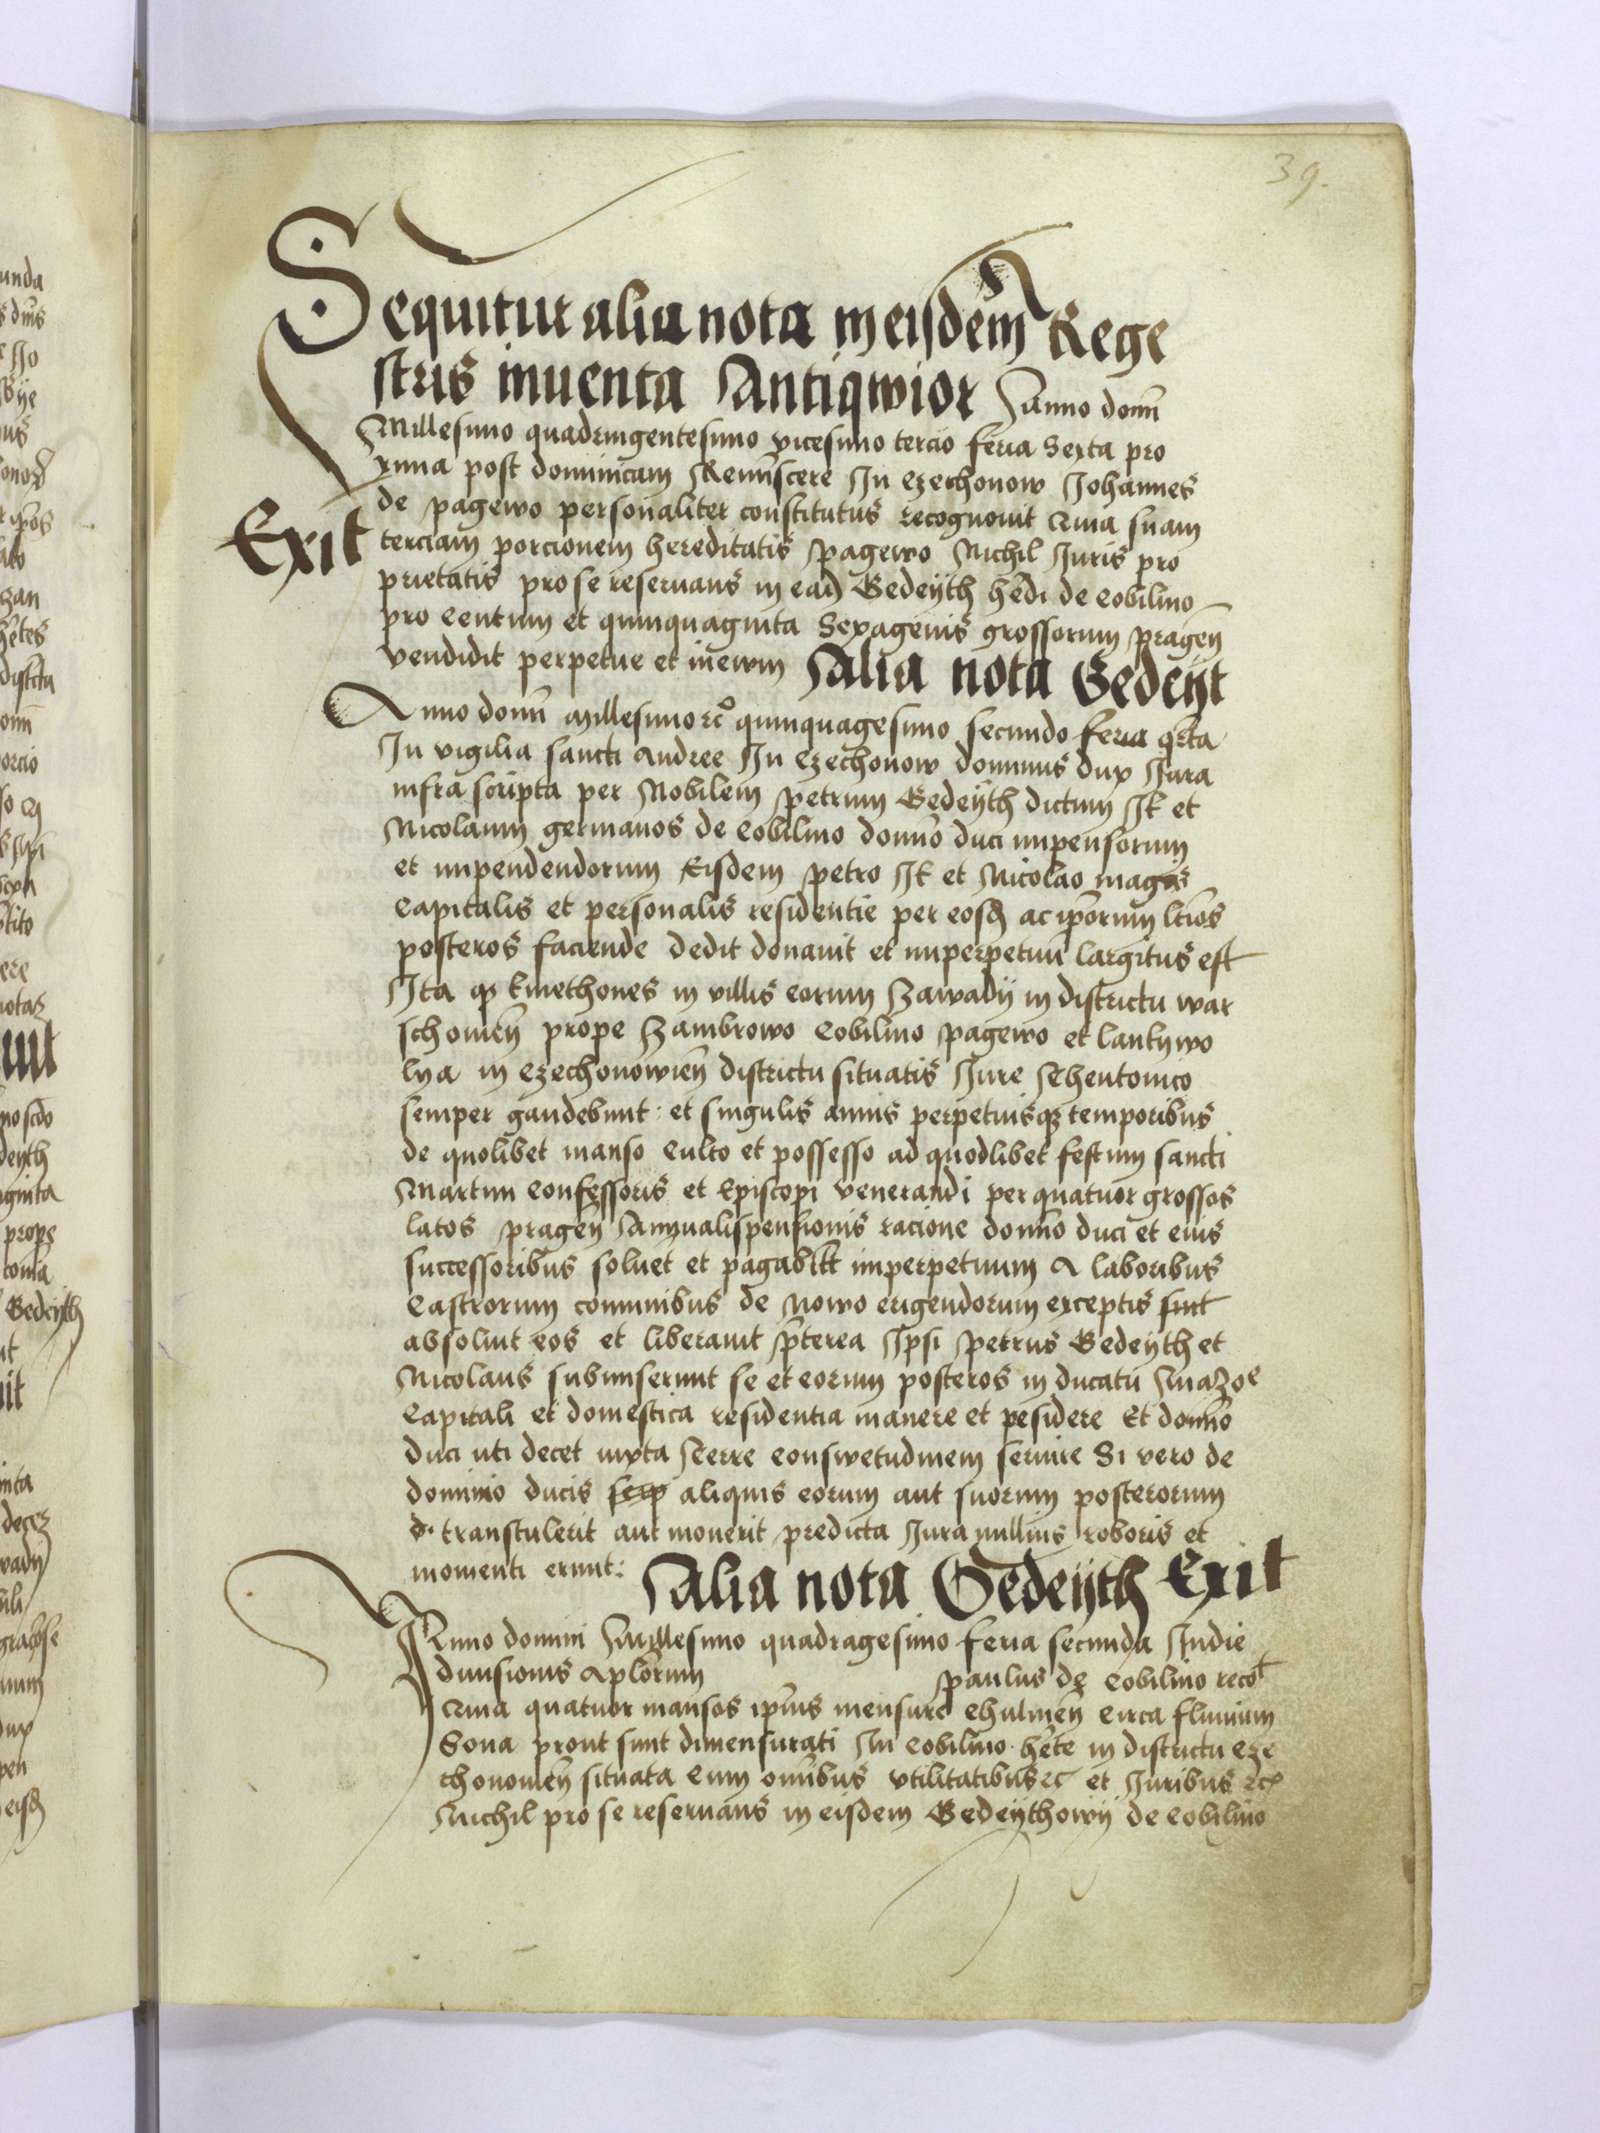 39.
Sequitur alia nota in eisdem Rege
stris inuenta Antiqwior Anno domi
Millesimo quadringentesimo vicesimo tercio feria Sexta pro
xima post dominicam Reminiscere In Czechonow Johannes
Exit
de pagewo personaliter constitutus recognouit Quia suam
terciam porcionem hereditatis pagewo Nichil Juris pro
prietatis pro se reseruans in ead Gedeyth hedi de Cobilino
pro Centum et quinquaginta Sexagenis grossorum pragen
vendidit perpetue et in ewm Alia nota Gedeyt
Anno domi Millesimo rc quinquagesimo secundo feria qrta
In vigilia sancti Andree In Czechonow dominus dux Jura
infra scripta per Nobilem petrum Gedeyth dictum Jt et
Nicolaum germanos de Cobilino domno duci impensorum
et impendendorum Eisdem petro Jt et Nicolao magis
Capitalis et personalis residentie per eosd ac iporum ltios
posteros faciende dedit donauit et imperpetuu largitus est
Ita q kmethones in villis eorum Zawady in districtu war
schouien prope Zambrowo Cobilino pagewo et lantywo
lya in Czechonowien districtu situatis Jure Thentonico
semper gaudebunt: et singulis annis perpetuisq temporibus
de quolibet manso culto et possesso ad quodlibet festum sancti
Martini Confessoris et Episcopi venerandi per quatuor grossos
latos pragen Annualispensionis racione domno duci et eius
successoribus soluet et pagabtt imperpetuum A laboribus
Castrorum comunibus de Nowo erigendorum exceptis sint
absoluit eos et liberauit pterea Ipsi petrus Gedeyth et
Nicolaus subinserunt se et eorum posteros in ducatu Mazoe
Capitali et domestica residentia manere et pesidere Et domno
duci uti decet iuxta Terre conswetudinem seruire Si vero de
dominio ducis aliquis eorum aut suorum posterorum
d transtulerit aut mouerit predicta Jura nullius roboris et
momenti erunt: Alia nota Gedeyth Exit
Anno domini Millesimo quadragesimo feria secunda Indie
diuisionis Aplorum paulus de Cobilino recot
Quia quatuor mansos ipius mensure Chulmen Circa fluuium
Sona prout sunt dimensurati In Cobilino hete in districtu Cze
chonouien situata Cum omibus vtilitatibus rc et Juribus rc
Nichil pro se reseruans in eisdem Gedeythowy de Cobilino